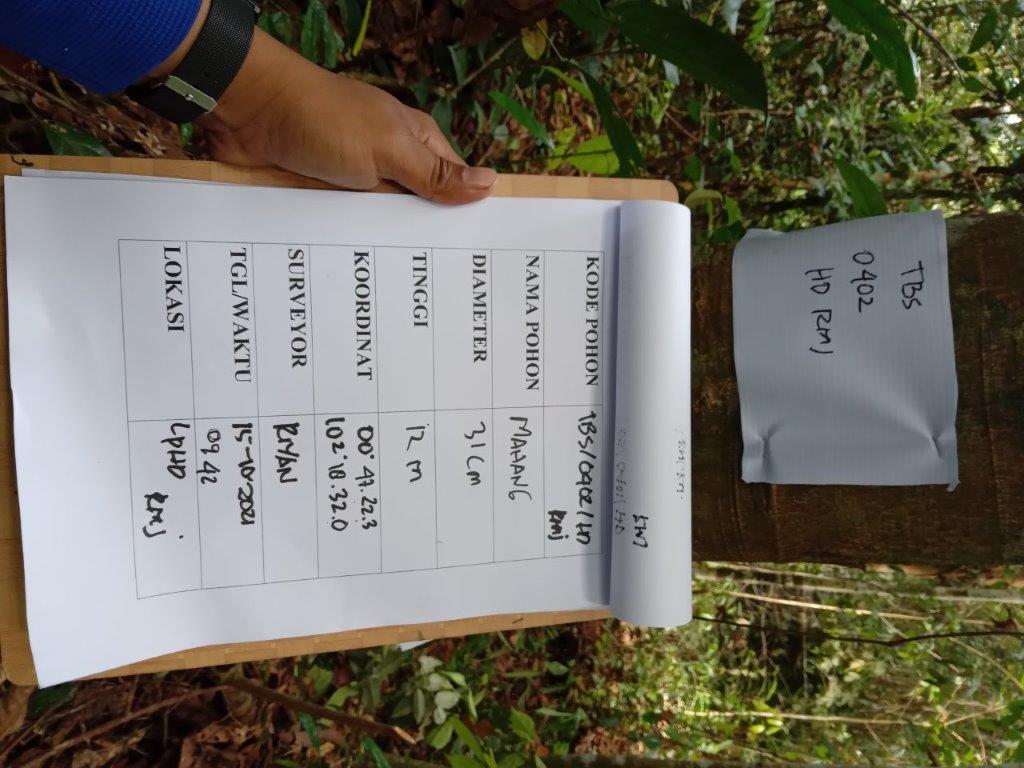 TBS
0402
HD RMJ
KODE POHON TBS/0402/HD
RMJ
NAMA POHON MAHANG
DIAMETER 31 cm
TINGGI 12 m
KOORDINAT 00° 47.22.3
102° 18.32.0
SURVEYOR RIYAN
TGL/WAKTU 15-10-2021
09 42
LOKASI LPHD
RMJ